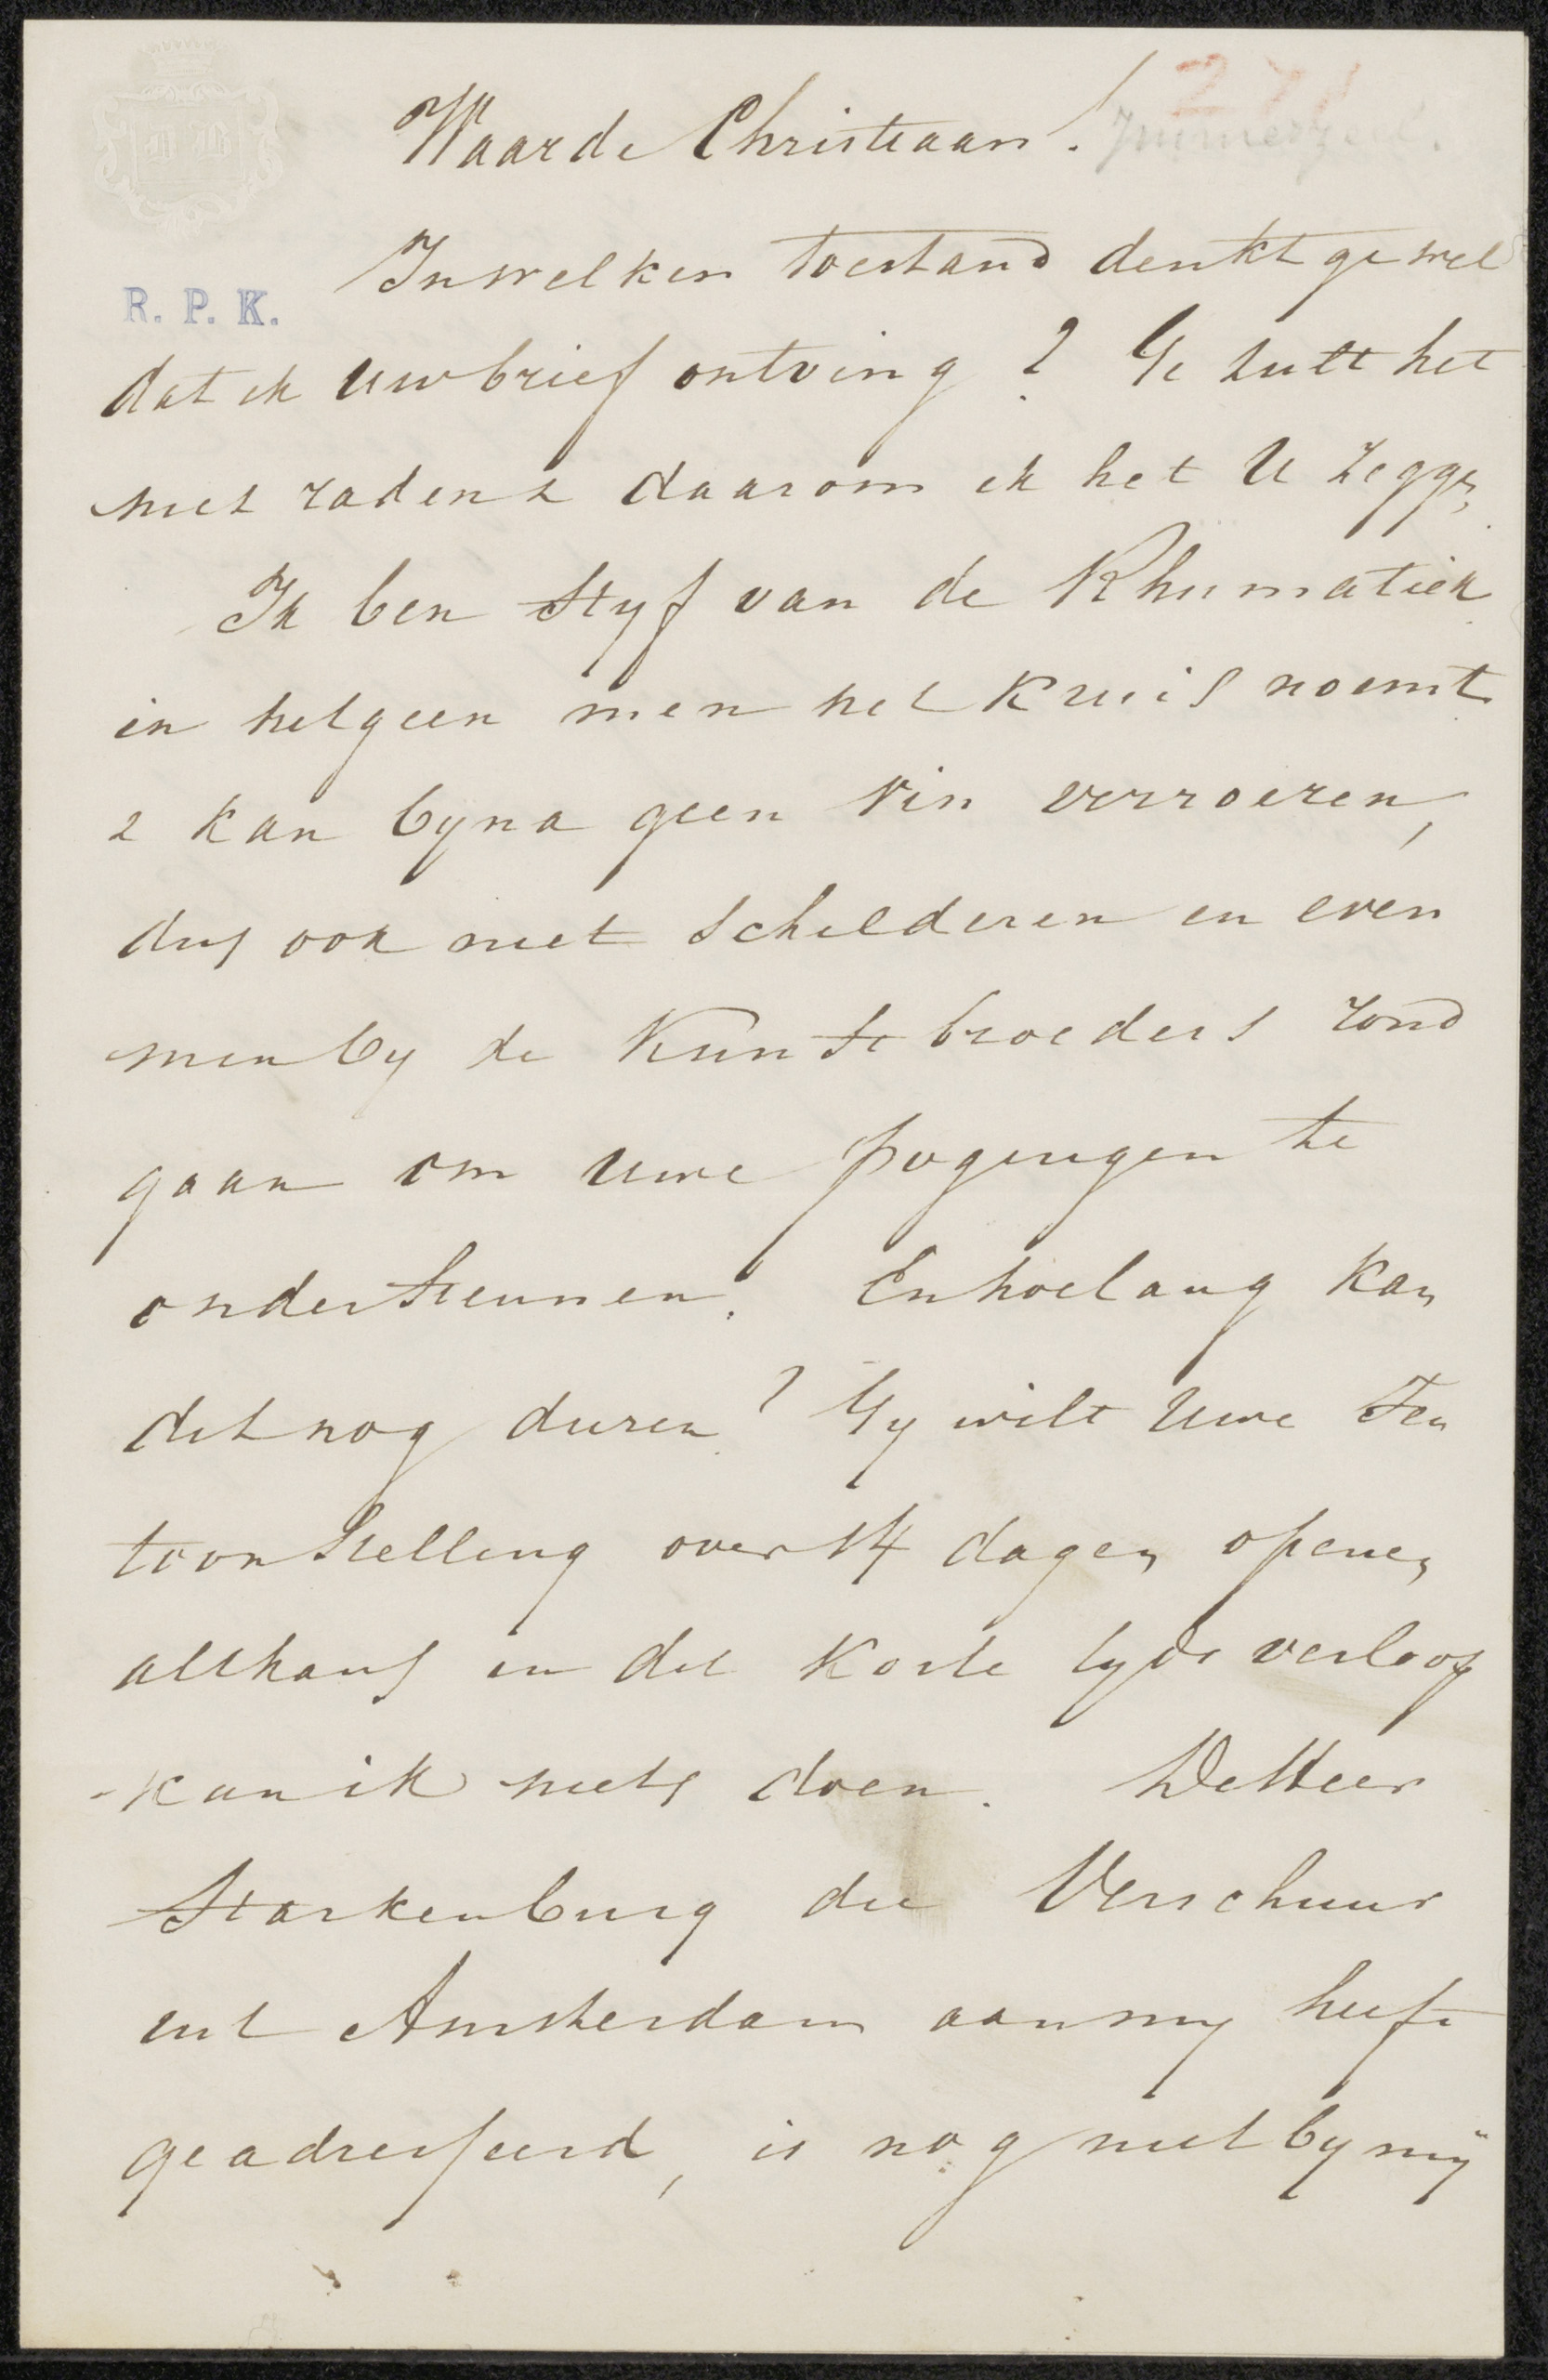 271
Waarde Christiaan! Immerzeel.
In welken toestand denkt ge wel
R. P. K.
dat ik uw brief ontving? Ge zult het
niet raden & daarom ik het U zeggen
Ik ben Styf van de Rhumatiek
in hetgeen men het Kruis noemt
& kan byna geen vin verroeren,
dus ook niet Schilderen en even
min by de Kunstbroeders rond
gaan om uwe pogingen te
ondersteunen. En hoelang kan
dit nog duren? Gy wilt Uwe Ten
toonstelling over 14 dagen openen
althans in dit korte tyds verloop
kan ik niets doen. De Heer
Starkenburg die Verschuur
uit Amsterdam aan my heeft
geadresseerd, is nog niet by mÿ